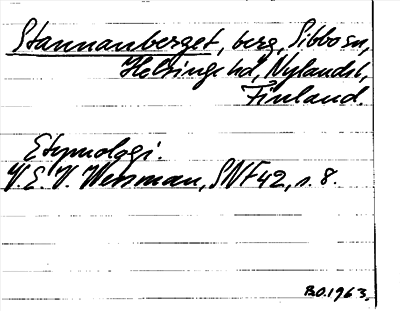 Stannanberget, berg, Sibbo sn,
Helsinge hd, Nylands l,
Finland.
Etymologi.
V.E.V. Wessman, SNF 42, s. 8.
B.O. 1963.